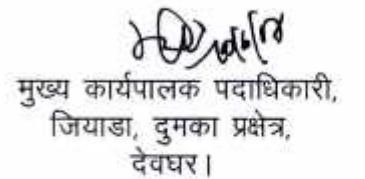 मुख्य कार्यपालक पदाधिकारी,
जियाडा, दुमका प्रक्षेत्र,
देवघर।